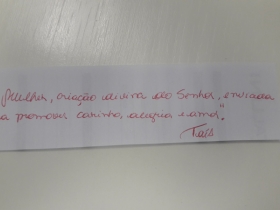 Mulher, criação divina do Senhor, enviada
a promover carinho, alegria e amor."
Taís